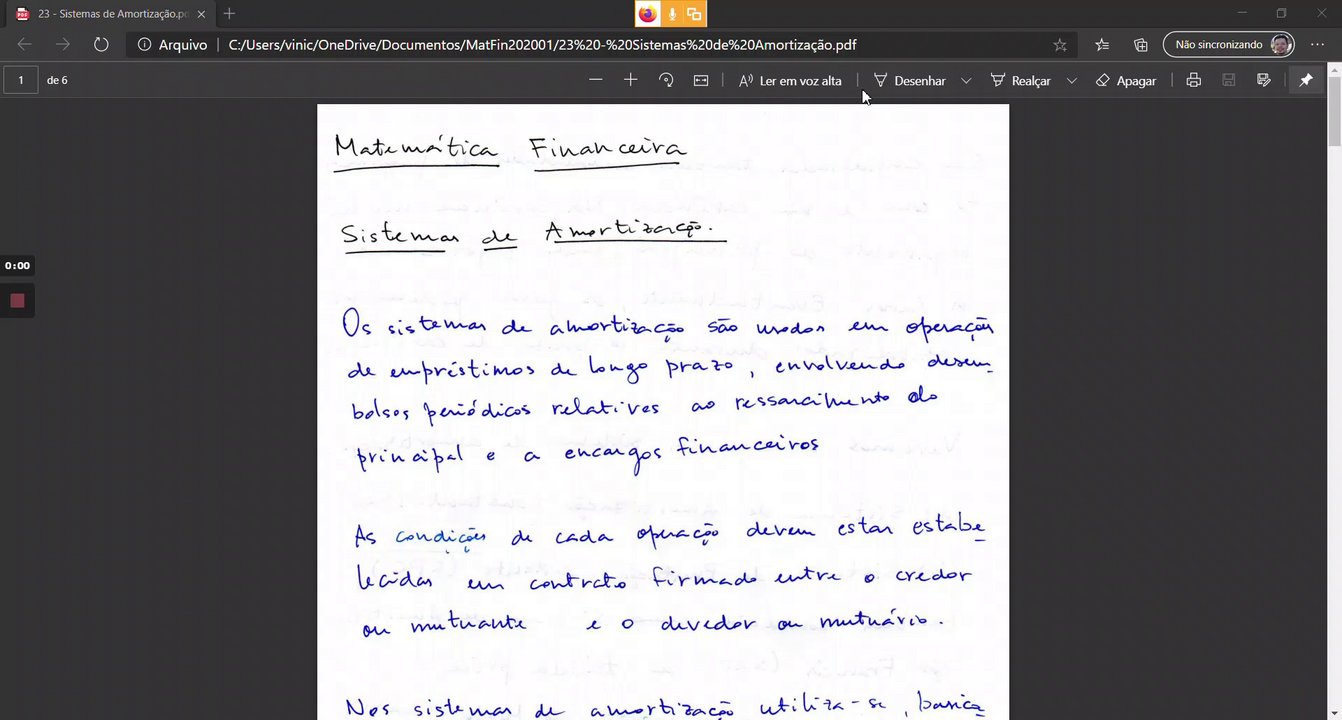 23 - Sistemas de Amortização.pd
Arquivo
C:/Users/vinic/OneDrive/Documentos/MatFin202001/23%20-%20Sistemas%20de%20Amortização.pdf
Não sincronizando
1 de 6
Ler em voz alta
Desenhar
Realçar
Apagar
Matemática Financeira
Sistemas de Amortização.
0:00
Os sistemas de amortização são usados em operações
de empréstimos de longo prazo, envolvendo desem_
bolsos periódicos relativos ao ressarcimento do
principal e a encargos financeiros
As condições de cada operação devem estar estabe_
lecidas em contrato firmado entre o credor
ou mutuante e o devedor ou mutuário.
Nos sistemas de amortização utiliza-se, basica_